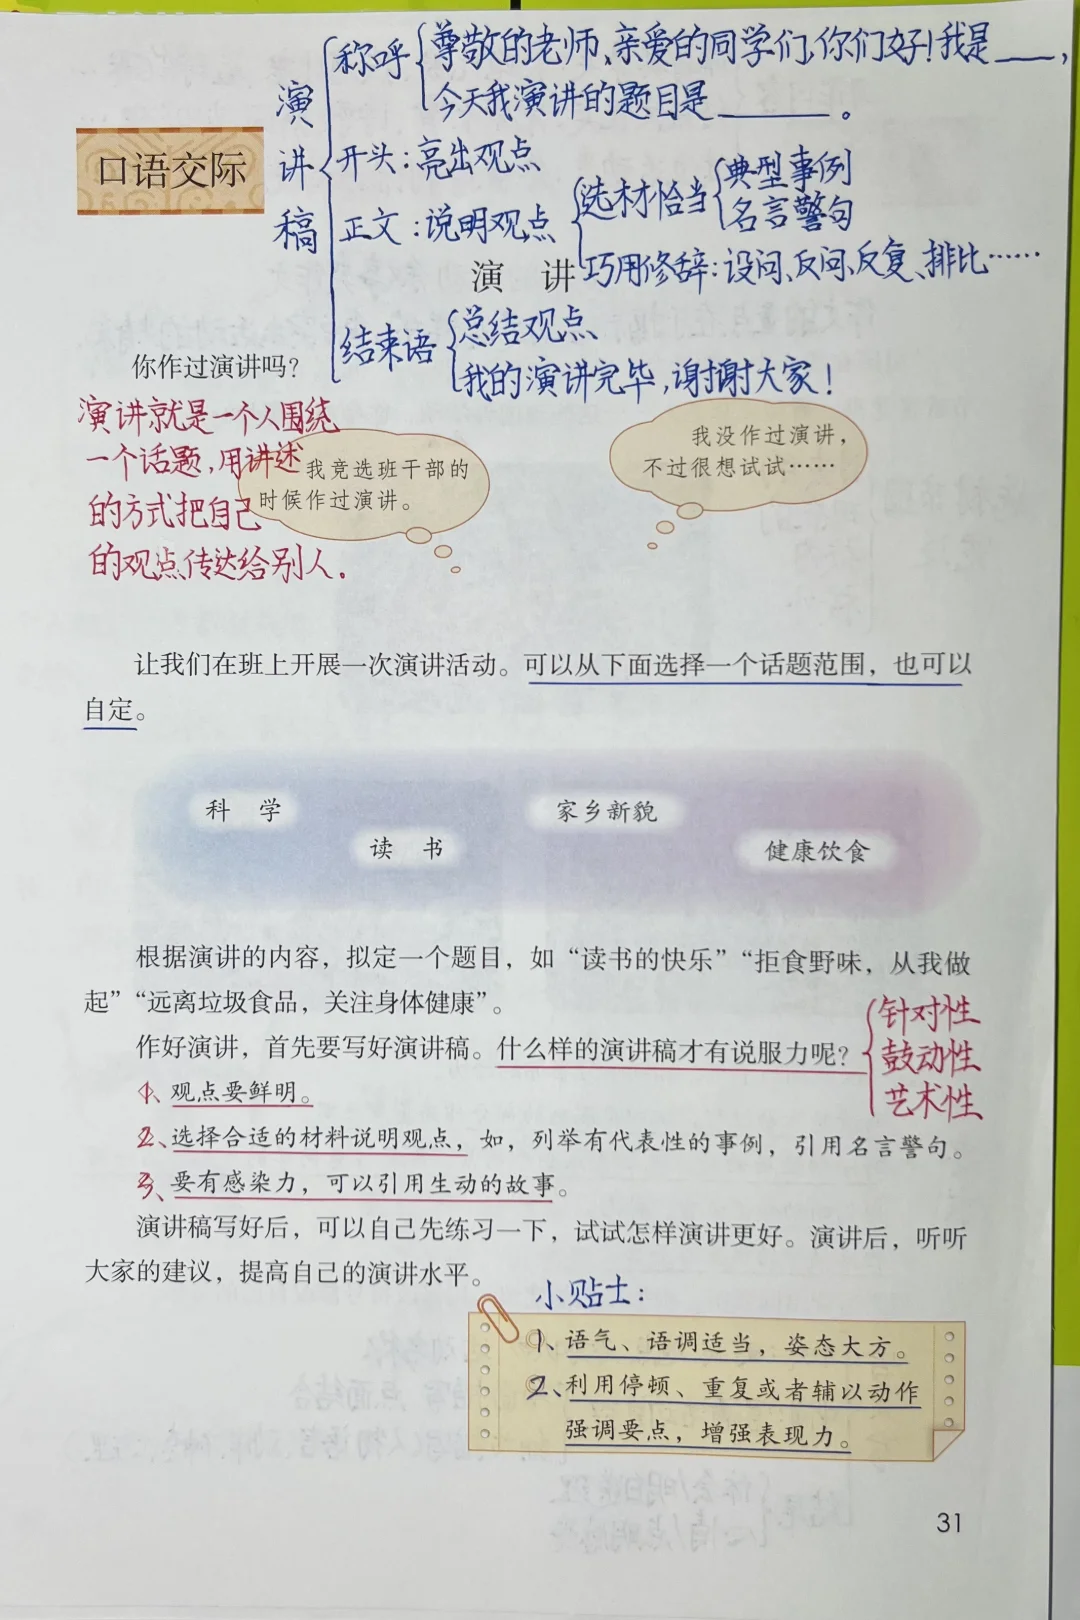 演讲稿
称呼
尊敬的老师、亲爱的同学们,你们好!我是____,
今天我演讲的题目是______。
开头:亮出观点
正文:说明观点
选材恰当
典型事例
名言警句
巧用修辞:设问、反问、反复、排比……
结束语
总结观点
我的演讲完毕,谢谢大家!
口语交际
演 讲
你作过演讲吗?
演讲就是一个人围绕
一个话题,用讲述
的方式把自己
的观点传达给别人.
我竞选班干部的
时候作过演讲。
我没作过演讲,
不过很想试试……
让我们在班上开展一次演讲活动。可以从下面选择一个话题范围,也可以
自定。
科 学
家乡新貌
读 书
健康饮食
根据演讲的内容,拟定一个题目,如“读书的快乐”“拒食野味,从我做
起”“远离垃圾食品,关注身体健康”。
作好演讲,首先要写好演讲稿。什么样的演讲稿才有说服力呢?
针对性
鼓动性
艺术性
1、观点要鲜明。
2、选择合适的材料说明观点,如,列举有代表性的事例,引用名言警句。
3、要有感染力,可以引用生动的故事。
演讲稿写好后,可以自己先练习一下,试试怎样演讲更好。演讲后,听听
大家的建议,提高自己的演讲水平。
小贴士:
1、语气、语调适当,姿态大方。
2、利用停顿、重复或者辅以动作
强调要点,增强表现力。
31